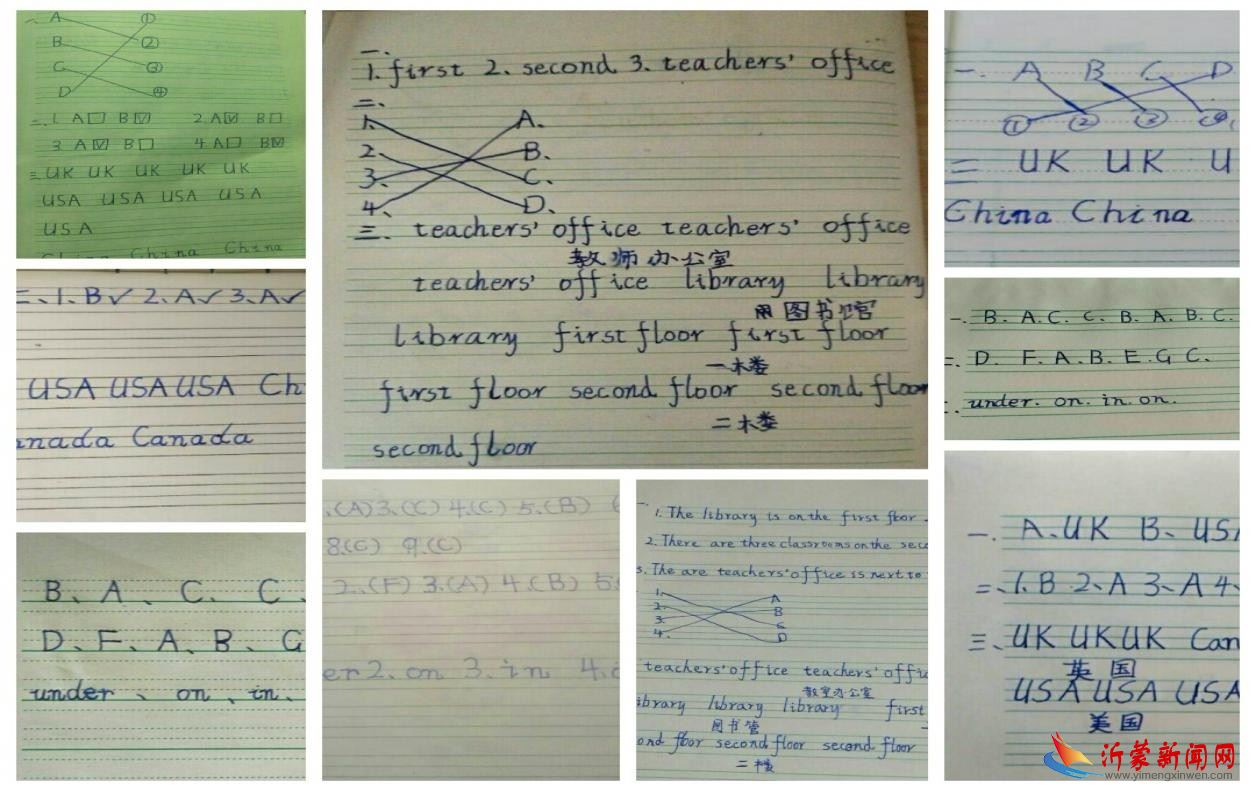 一、 A ①
B ②
C ③
D ④
二、1. A□ B☑ 2. A☑ B□
3. A☑ B□ 4. A□ B☑
三、UK UK UK UK UK
USA USA USA USA
USA
China China China
二、1. B✓ 2. A✓ 3. A✓
USA USA USA Ch
nada Canada
B、A、C、C、
D、F、A、B、G
under、on、in、
一、
1. first 2. second 3. teachers' office
二、
1、 A、
2、 B、
3、 C、
4、 D、
三、teachers' office teachers' office
教师办公室
teachers' office library library
图书馆
library first floor first floor
一楼
first floor second floor second floor
二楼
second floor
.(A) 3.(C) 4.(C) 5.(B)
8.(C) 9.(C)
2.(F) 3.(A) 4.(B) 5.
er 2. on 3. in 4.
一、1. The library is on the first floor.
2. There are three classrooms on the seco
3. The are teachers' office is next to
1. A
2. B
3. C
4. D
teachers' office teachers' offic
教室办公室
ibrary library library first
图书管
ond floor second floor second floor
二楼
一、 A B C D
① ② ③ ④
二 UK UK U
China China
一、B. A. C. C. B. A. B. C.
二、D. F. A. B. E. G C.
under. on. in. on.
一、A、UK B、USA
二、1. B 2、A 3、A 4、
三、UK UK UK Can
英国
USA USA USA
美国
沂蒙新闻网
www.yimengxinwen.com